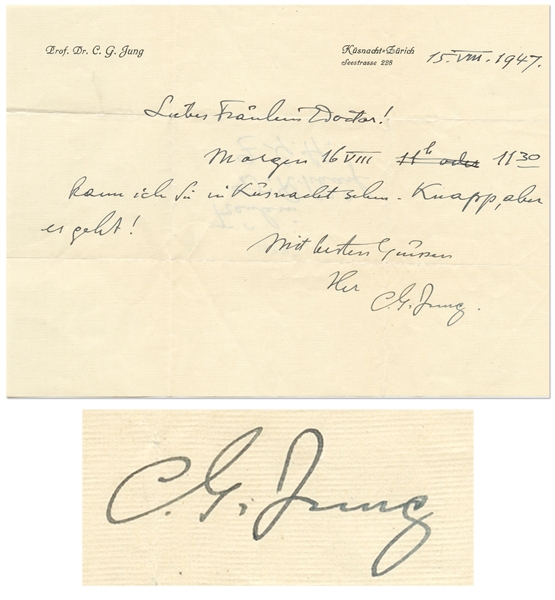 Prof. Dr. C. G. Jung
Küsnacht-Zürich
Seestrasse 228
15. VIII. 1947.
Liebes Fräulein Doctor!
Morgen 16 VIII 11h oder 11 30
kann ich Sie in Küsnacht sehn. Knapp, aber
es geht!
Mit besten Grüssen
Ihr
C. G. Jung.
C. G. Jung